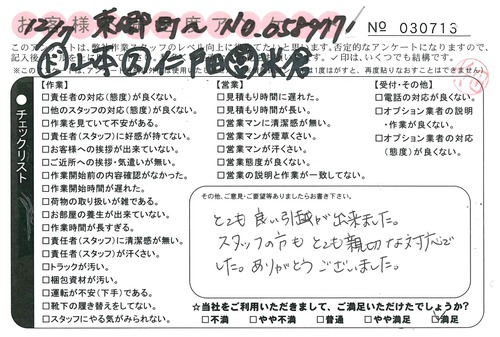 12/7 東郷町え No.058977
お客様 度ア
№ 030713
このアンケートは、弊社作業スタッフのレベル向上に 否定的なアンケートになりますので、
記入後 ✓印は、いくつでも結構です。
【作業】
□責任者の対応(態度)が良くない。
□他のスタッフの対応(態度)が良くない。
□作業を見ていて不安がある。
□責任者(スタッフ)に好感が持てない。
□お客様への挨拶が出来ていない。
□ご近所への挨拶・気遣いが無い。
□作業開始前の内容確認がなかった。
□作業開始時間が遅れた。
□荷物の取り扱いが雑である。
□お部屋の養生が出来ていない。
□作業時間が長すぎる。
□責任者(スタッフ)に清潔感が無い。
□責任者(スタッフ)が汗くさい。
□トラックが汚い。
□梱包資材が汚い。
□運転が不安(下手)である。
□靴下の履き替えをしてない。
□スタッフにやる気がみられない。
【営業】
□見積もり時間に遅れた。
□見積もり時間が長い。
□営業マンに清潔感が無い。
□営業マンが煙草くさい。
□営業マンが汗くさい。
□営業態度が良くない。
□営業の説明と作業が一致してない。
【受付・その他】
□電話の対応が良くない。
□オプション業者の説明
・作業が良くない。
□オプション業者の対応
(態度)が良くない。
チェックリスト
その他、ご意見・ご要望等ありましたらお書き下さい。
とても良い引越が出来ました。
スタッフの方もとても親切な対応で
した。ありがとうございました。
☆当社をご利用いただきまして、ご満足いただけたでしょうか?
□不満 □やや不満 □普通 □やや満足 □満足